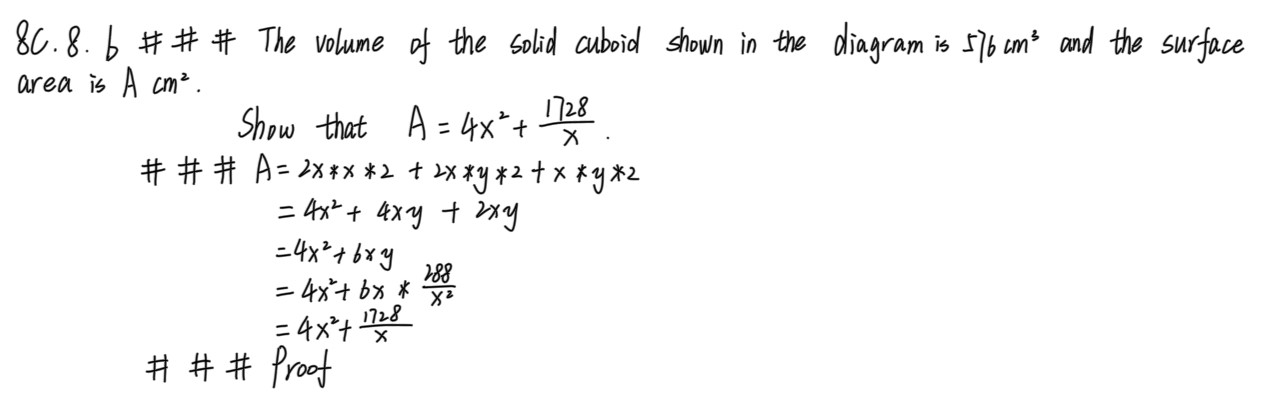 8C.8.b # # # The volume of the solid cuboid shown in the diagram is 576 cm³ and the surface
area is A cm².
Show that A = 4x² + 1728/x.
# # # A = 2x*x*2 + 2x*y*2 + x*y*2
= 4x² + 4xy + 2xy
= 4x² + 6xy
= 4x² + 6x * 288/x²
= 4x² + 1728/x
# # # Proof